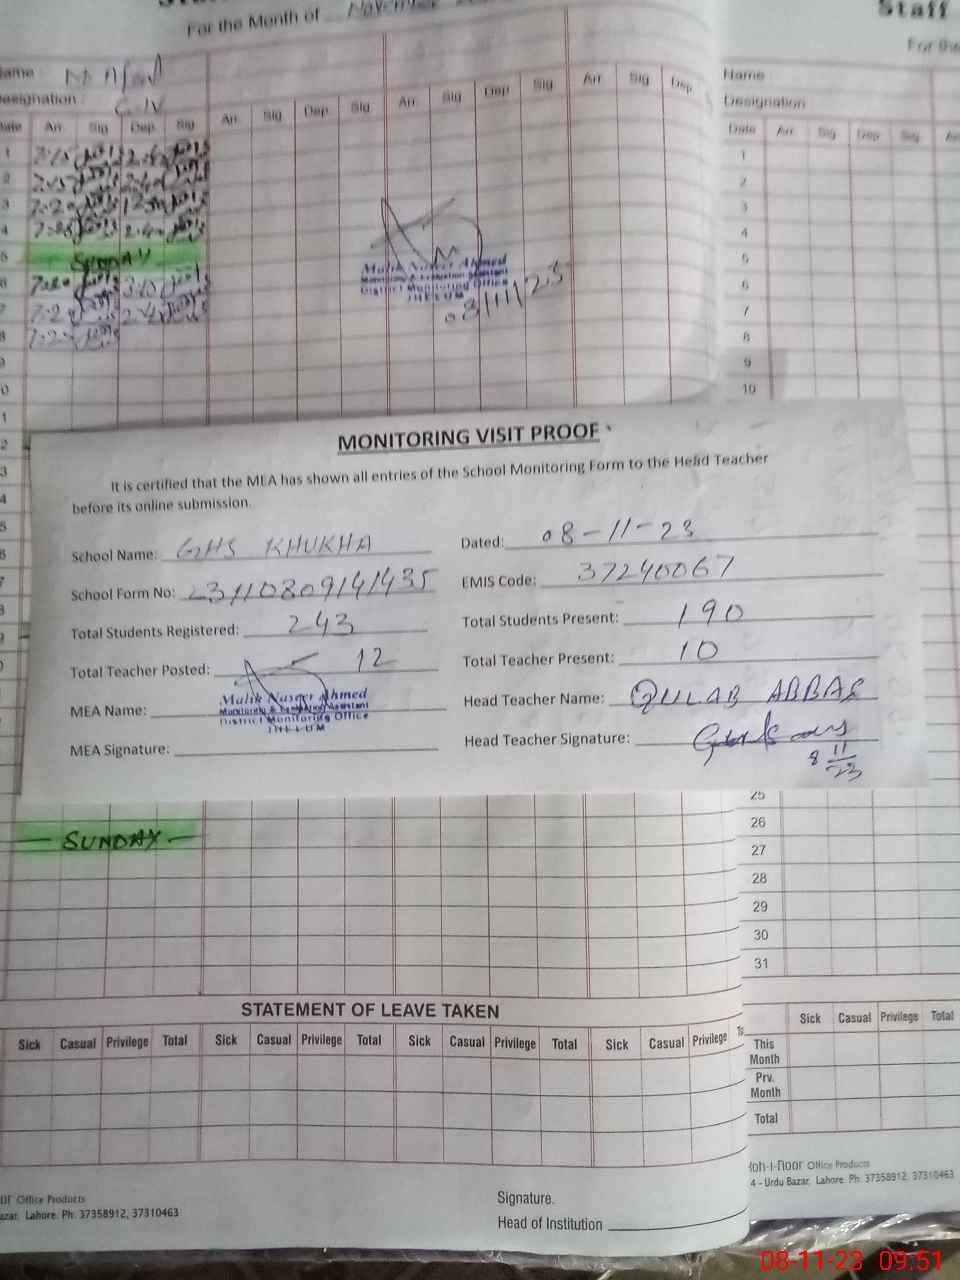 For the Month of November
Staff
For the
Name
Designation
Date Arr. Sig Dep. Sig Arr. Sig Dep. Sig Arr. Sig Dep. Sig Arr. Sig Dep.
1
2
3
4
5 SUNDAY
6
7
8
9
Malik Naseer Ahmed
Monitoring & Evaluation Assistant
District Monitoring Office
JHELUM
08/11/23
Name
Designation
Date Arr. Sig Dep. Sig
1
2
3
4
5
6
7
8
9
10
MONITORING VISIT PROOF
It is certified that the MEA has shown all entries of the School Monitoring Form to the Head Teacher
before its online submission.
School Name: GHS KHUKHA Dated: 08-11-23
School Form No: 23110809141435 EMIS Code: 37240067
Total Students Registered: 243 Total Students Present: 190
Total Teacher Posted: 12 Total Teacher Present: 10
MEA Name: Malik Naseer Ahmed Head Teacher Name: GULAB ABBAS
Monitoring & Evaluation Assistant
District Monitoring Office
JHELUM
MEA Signature: Head Teacher Signature:
8 11 23
SUNDAY
25
26
27
28
29
30
31
STATEMENT OF LEAVE TAKEN
Sick Casual Privilege Total Sick Casual Privilege Total Sick Casual Privilege Total Sick Casual Privilege
Sick Casual Privilege Total
This Month
Prv. Month
Total
Office Products
Lahore. Ph: 37358912, 37310463
Signature.
Head of Institution
Koh-i-noor Office Products
4 - Urdu Bazar, Lahore. Ph: 37358912, 37310463
08-11-23 09:51